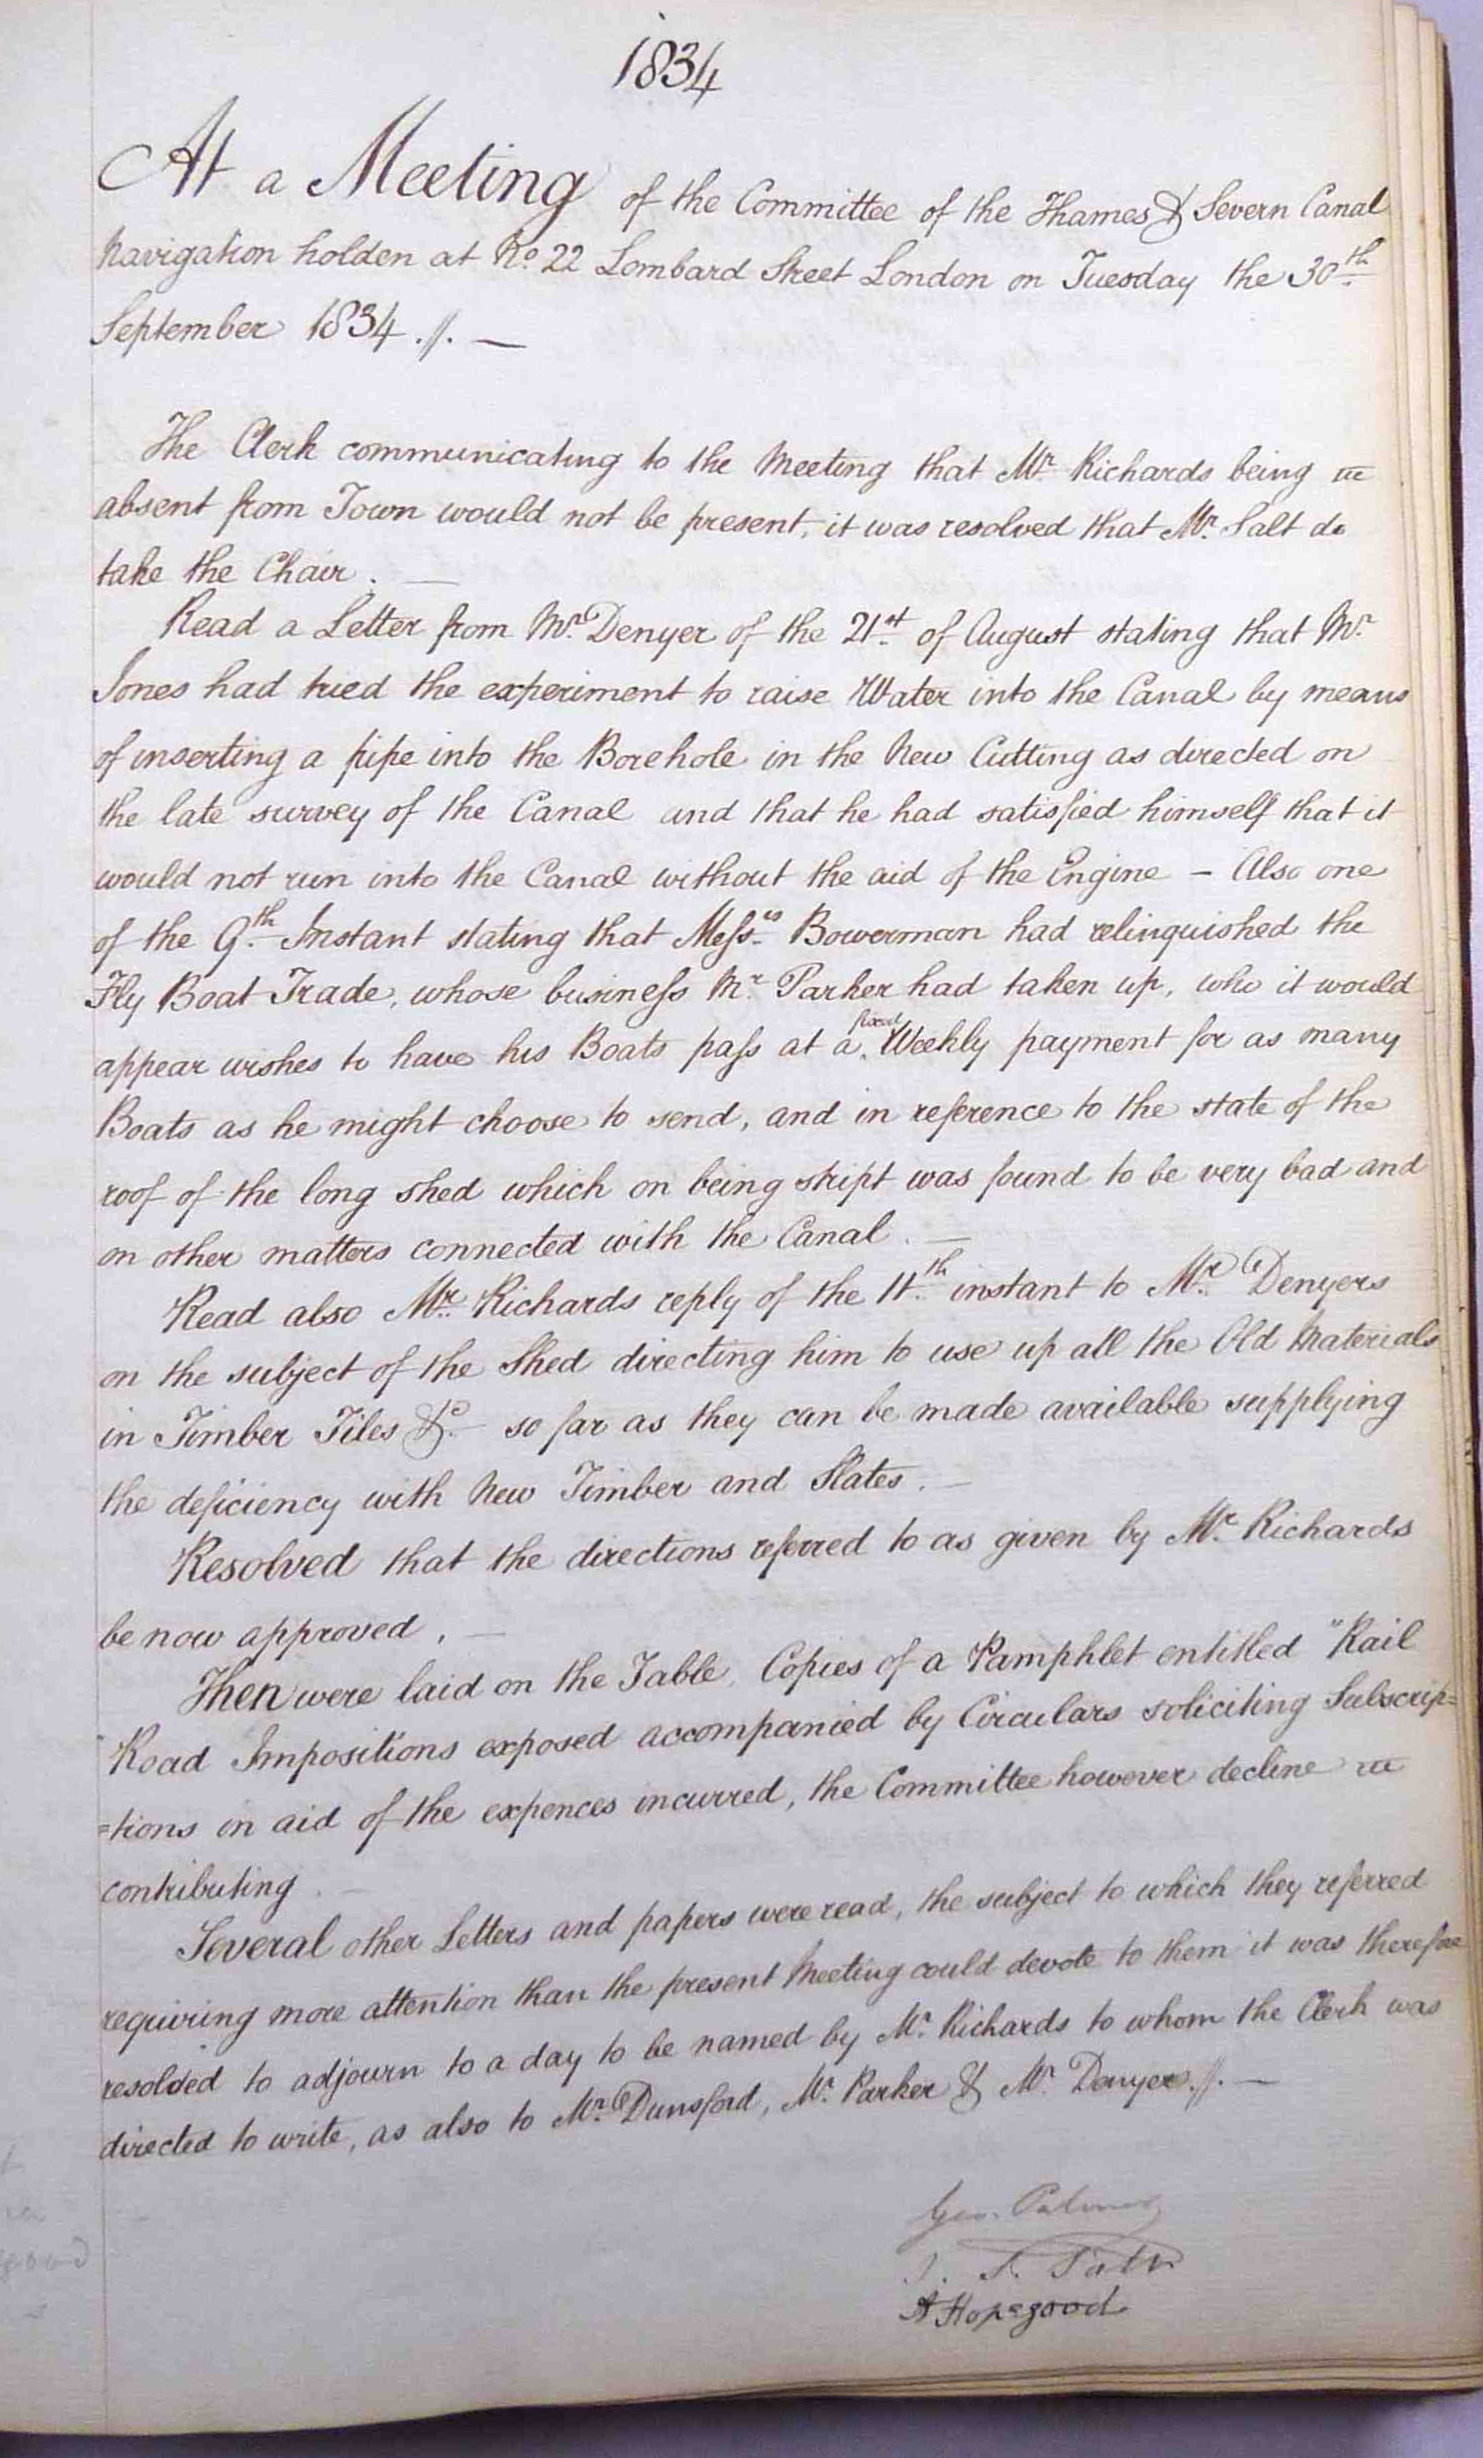 1834
At a Meeting of the Committee of the Thames & Severn Canal
Navigation holden at No. 22 Lombard Street London on Tuesday the 30th
September 1834 .//. —
The Clerk communicating to the Meeting that Mr. Richards being
absent from Town would not be present, it was resolved that Mr. Salt do
take the Chair. —
Read a Letter from Mr. Denyer of the 21st of August stating that Mr.
Jones had tried the experiment to raise Water into the Canal by means
of inserting a pipe into the Borehole in the New Cutting as directed on
the late survey of the Canal and that he had satisfied himself that it
would not run into the Canal without the aid of the Engine – Also one
of the 9th Instant stating that Messrs Bowerman had relinquished the
Fly Boat Trade, whose business Mr. Parker had taken up, who it would
appear wishes to have his Boats pass at a fixed Weekly payment for as many
Boats as he might choose to send, and in reference to the state of the
roof of the long shed which on being stript was found to be very bad and
on other matters connected with the Canal. —
Read also Mr. Richards reply of the 11th instant to Mr. Denyers
on the subject of the Shed directing him to use up all the Old Materials
in Timber Tiles &c. so far as they can be made available supplying
the deficiency with New Timber and Slates. —
Resolved that the directions referred to as given by Mr. Richards
be now approved. —
Then were laid on the Table, Copies of a Pamphlet entitled "Rail
"Road Impositions exposed accompanied by Circulars soliciting Subscrip=
=tions in aid of the expences incurred, the Committee however decline
contributing. —
Several other Letters and papers were read, the subject to which they referred
requiring more attention than the present Meeting could devote to them it was therefore
resolved to adjourn to a day to be named by Mr. Richards to whom the Clerk was
directed to write, as also to Mr. Dunsford, Mr. Parker & Mr. Denyer .//. —
Geo. Palmer
S. Salt
A Hopegood